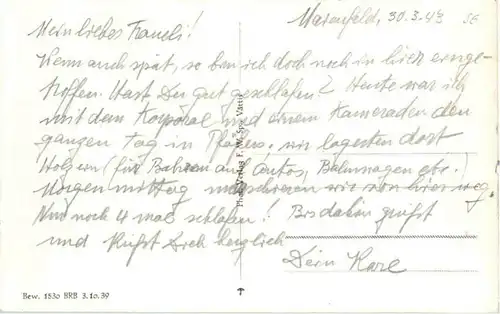 Maienfeld, 30.3.43
Mein liebes Fraueli!
Wenn auch spät, so bin ich doch noch in hier einge-
troffen. Hast Du gut geschlafen? Heute war ich
mit dem Korporal und einem Kameraden den
ganzen Tag in Pfäfers. wir lagerten dort
Holzern (für auf Autos, Bahnwagen etc.)
Morgen mittag marschieren wir von hier weg.
Nur noch 4 mal schlafen! Bis dahin grüsst
und küsst Dich herzlich
Dein Karl
Photo Verlag F. W. Vättis
Bew. 1530 BRB 3.10.39